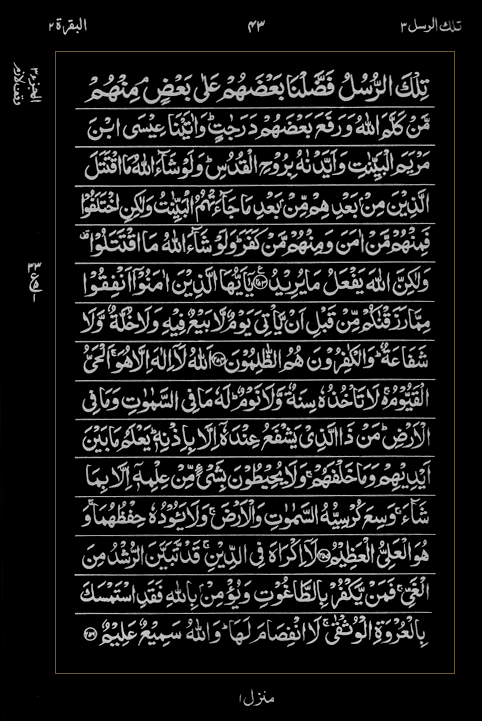 تلك الرسل ٣
٤٣
البقرة ٢
تِلْكَ الرُّسُلُ فَضَّلْنَا بَعْضَهُمْ عَلٰى بَعْضٍ ۘ مِنْهُمْ
مَّنْ كَلَّمَ اللّٰهُ وَرَفَعَ بَعْضَهُمْ دَرَجٰتٍ ؕ وَاٰتَيْنَا عِيْسَى ابْنَ
مَرْيَمَ الْبَيِّنٰتِ وَاَيَّدْنٰهُ بِرُوْحِ الْقُدُسِ ؕ وَلَوْ شَآءَ اللّٰهُ مَا اقْتَتَلَ
الَّذِيْنَ مِنْۢ بَعْدِهِمْ مِّنْۢ بَعْدِ مَا جَآءَتْهُمُ الْبَيِّنٰتُ وَلٰكِنِ اخْتَلَفُوْا
فَمِنْهُمْ مَّنْ اٰمَنَ وَمِنْهُمْ مَّنْ كَفَرَ ؕ وَلَوْ شَآءَ اللّٰهُ مَا اقْتَتَلُوْا ۟
وَلٰكِنَّ اللّٰهَ يَفْعَلُ مَا يُرِيْدُ ﴿٢٥٣﴾ يٰۤاَيُّهَا الَّذِيْنَ اٰمَنُوْۤا اَنْفِقُوْا
مِمَّا رَزَقْنٰكُمْ مِّنْ قَبْلِ اَنْ يَّاْتِىَ يَوْمٌ لَّا بَيْعٌ فِيْهِ وَلَا خُلَّةٌ وَّلَا
شَفَاعَةٌ ؕ وَالْكٰفِرُوْنَ هُمُ الظّٰلِمُوْنَ ﴿٢٥٤﴾ اَللّٰهُ لَاۤ اِلٰهَ اِلَّا هُوَ ۚ اَلْحَىُّ
الْقَيُّوْمُ ۚ لَا تَاْخُذُهٗ سِنَةٌ وَّلَا نَوْمٌ ؕ لَهٗ مَا فِى السَّمٰوٰتِ وَمَا فِى
الْاَرْضِ ؕ مَنْ ذَا الَّذِىْ يَشْفَعُ عِنْدَهٗۤ اِلَّا بِاِذْنِهٖ ؕ يَعْلَمُ مَا بَيْنَ
اَيْدِيْهِمْ وَمَا خَلْفَهُمْ ۚ وَلَا يُحِيْطُوْنَ بِشَىْءٍ مِّنْ عِلْمِهٖۤ اِلَّا بِمَا
شَآءَ ۚ وَسِعَ كُرْسِيُّهُ السَّمٰوٰتِ وَالْاَرْضَ ۚ وَلَا يَئُوْدُهٗ حِفْظُهُمَا ۚ وَ
هُوَ الْعَلِىُّ الْعَظِيْمُ ﴿٢٥٥﴾ لَاۤ اِكْرَاهَ فِى الدِّيْنِ ۙ قَدْ تَّبَيَّنَ الرُّشْدُ مِنَ
الْغَىِّ ۚ فَمَنْ يَّكْفُرْ بِالطَّاغُوْتِ وَيُؤْمِنْۢ بِاللّٰهِ فَقَدِ اسْتَمْسَكَ
بِالْعُرْوَةِ الْوُثْقٰى ۚ لَا انْفِصَامَ لَهَا ؕ وَاللّٰهُ سَمِيْعٌ عَلِيْمٌ ﴿٢٥٦﴾
الجزء ٣
وقف لازم
منزل ١